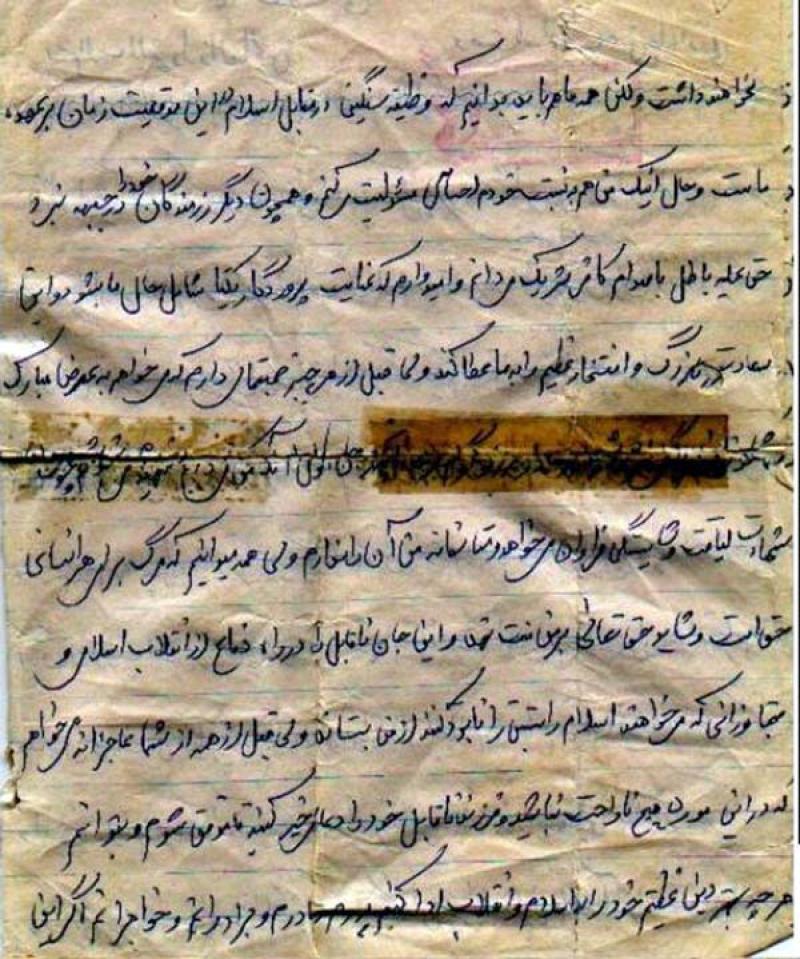 نخواهند داشت ولکن همه ما باید بدانیم که وظیفه سنگینی در مقابل اسلام در این موقعیت زمان بر عهده
ماست و حال اینک من هم به نسبت خودم احساس مسئولیت می کنم و همچون دیگر رزمندگان خود را در جبهه نبرد
حق علیه باطل با صدام کافر شریک می دانم و امیدوارم که عنایت پروردگار یکتا شامل حال ما بشود و این
سعادت بزرگ و افتخار عظیم را به ما عطا کند ولی قبل از هر چیز می خواهم به عرض مبارک
شهادت لیاقت و شایستگی فراوان می خواهد و متاسفانه من آن را ندارم ولی همه میدانیم که مرگ برای هر انسانی
حق است و شاید حق تعالی بر من منت نهد و این جان ناقابل را در راه دفاع از انقلاب اسلامی و
متجاوزانی که می خواهند اسلام راستین را نابود کنند از من بستاند ولی قبل از همه از شما عاجزانه می خواهم
که در این مورد هیچ ناراحت نباشید و فرزند ناقابل خود را دعای خیر کنید تا موفق شوم و بتوانم
هر چه بهتر دین عظیم خود را به اسلام و انقلاب ادا کنم پدرم مادرم و برادرانم و خواهرانم اگر این